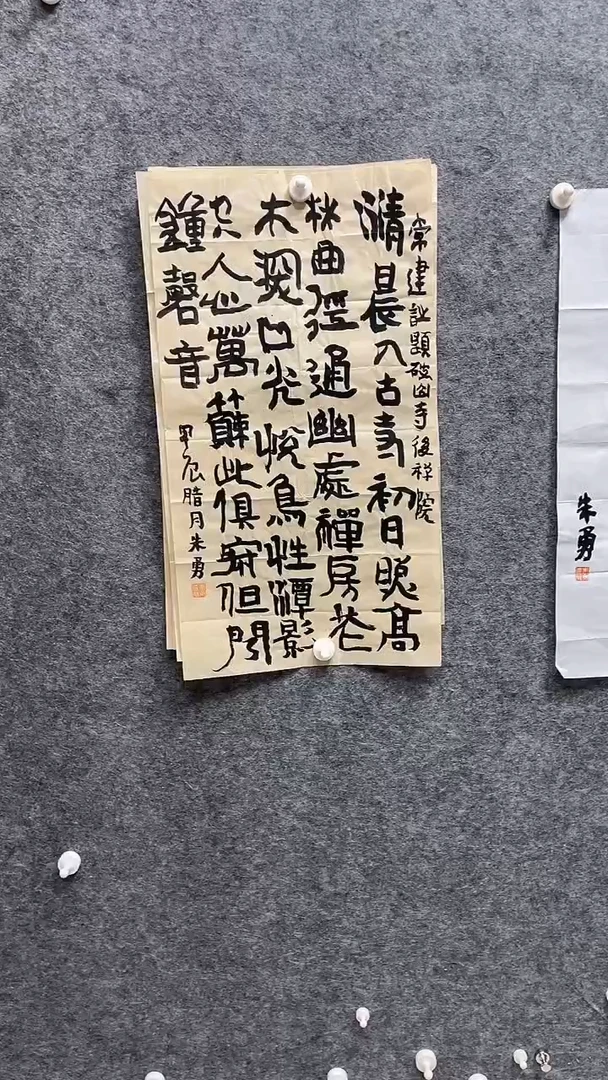 常建詩題破山寺後禅院
清晨入古寺初日照高
林曲径通幽處禪房花
木深山光悅鳥性潭影
空人心萬籟此俱寂但聞
鐘磬音
甲辰腊月朱勇
朱勇